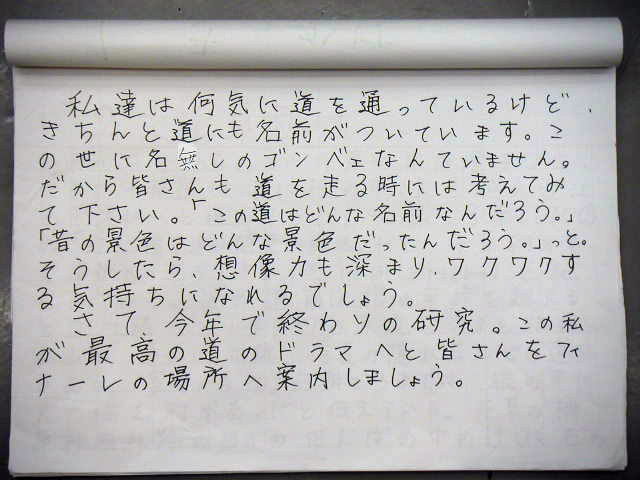 私達は何気に道を通っているけど、
きちんと道にも名前がついています。こ
の世に名無しのゴンベェなんていません。
だから皆さんも道を走る時には考えてみ
て下さい。「この道はどんな名前なんだろう。」
「昔の景色はどんな景色だったんだろう。」っと。
そうしたら、想像力も深まり、ワクワクす
る気持ちになれるでしょう。
さて、今年で終わりの研究。この私
が最高の道のドラマへと皆さんをフィ
ナーレの場所へ案内しましょう。